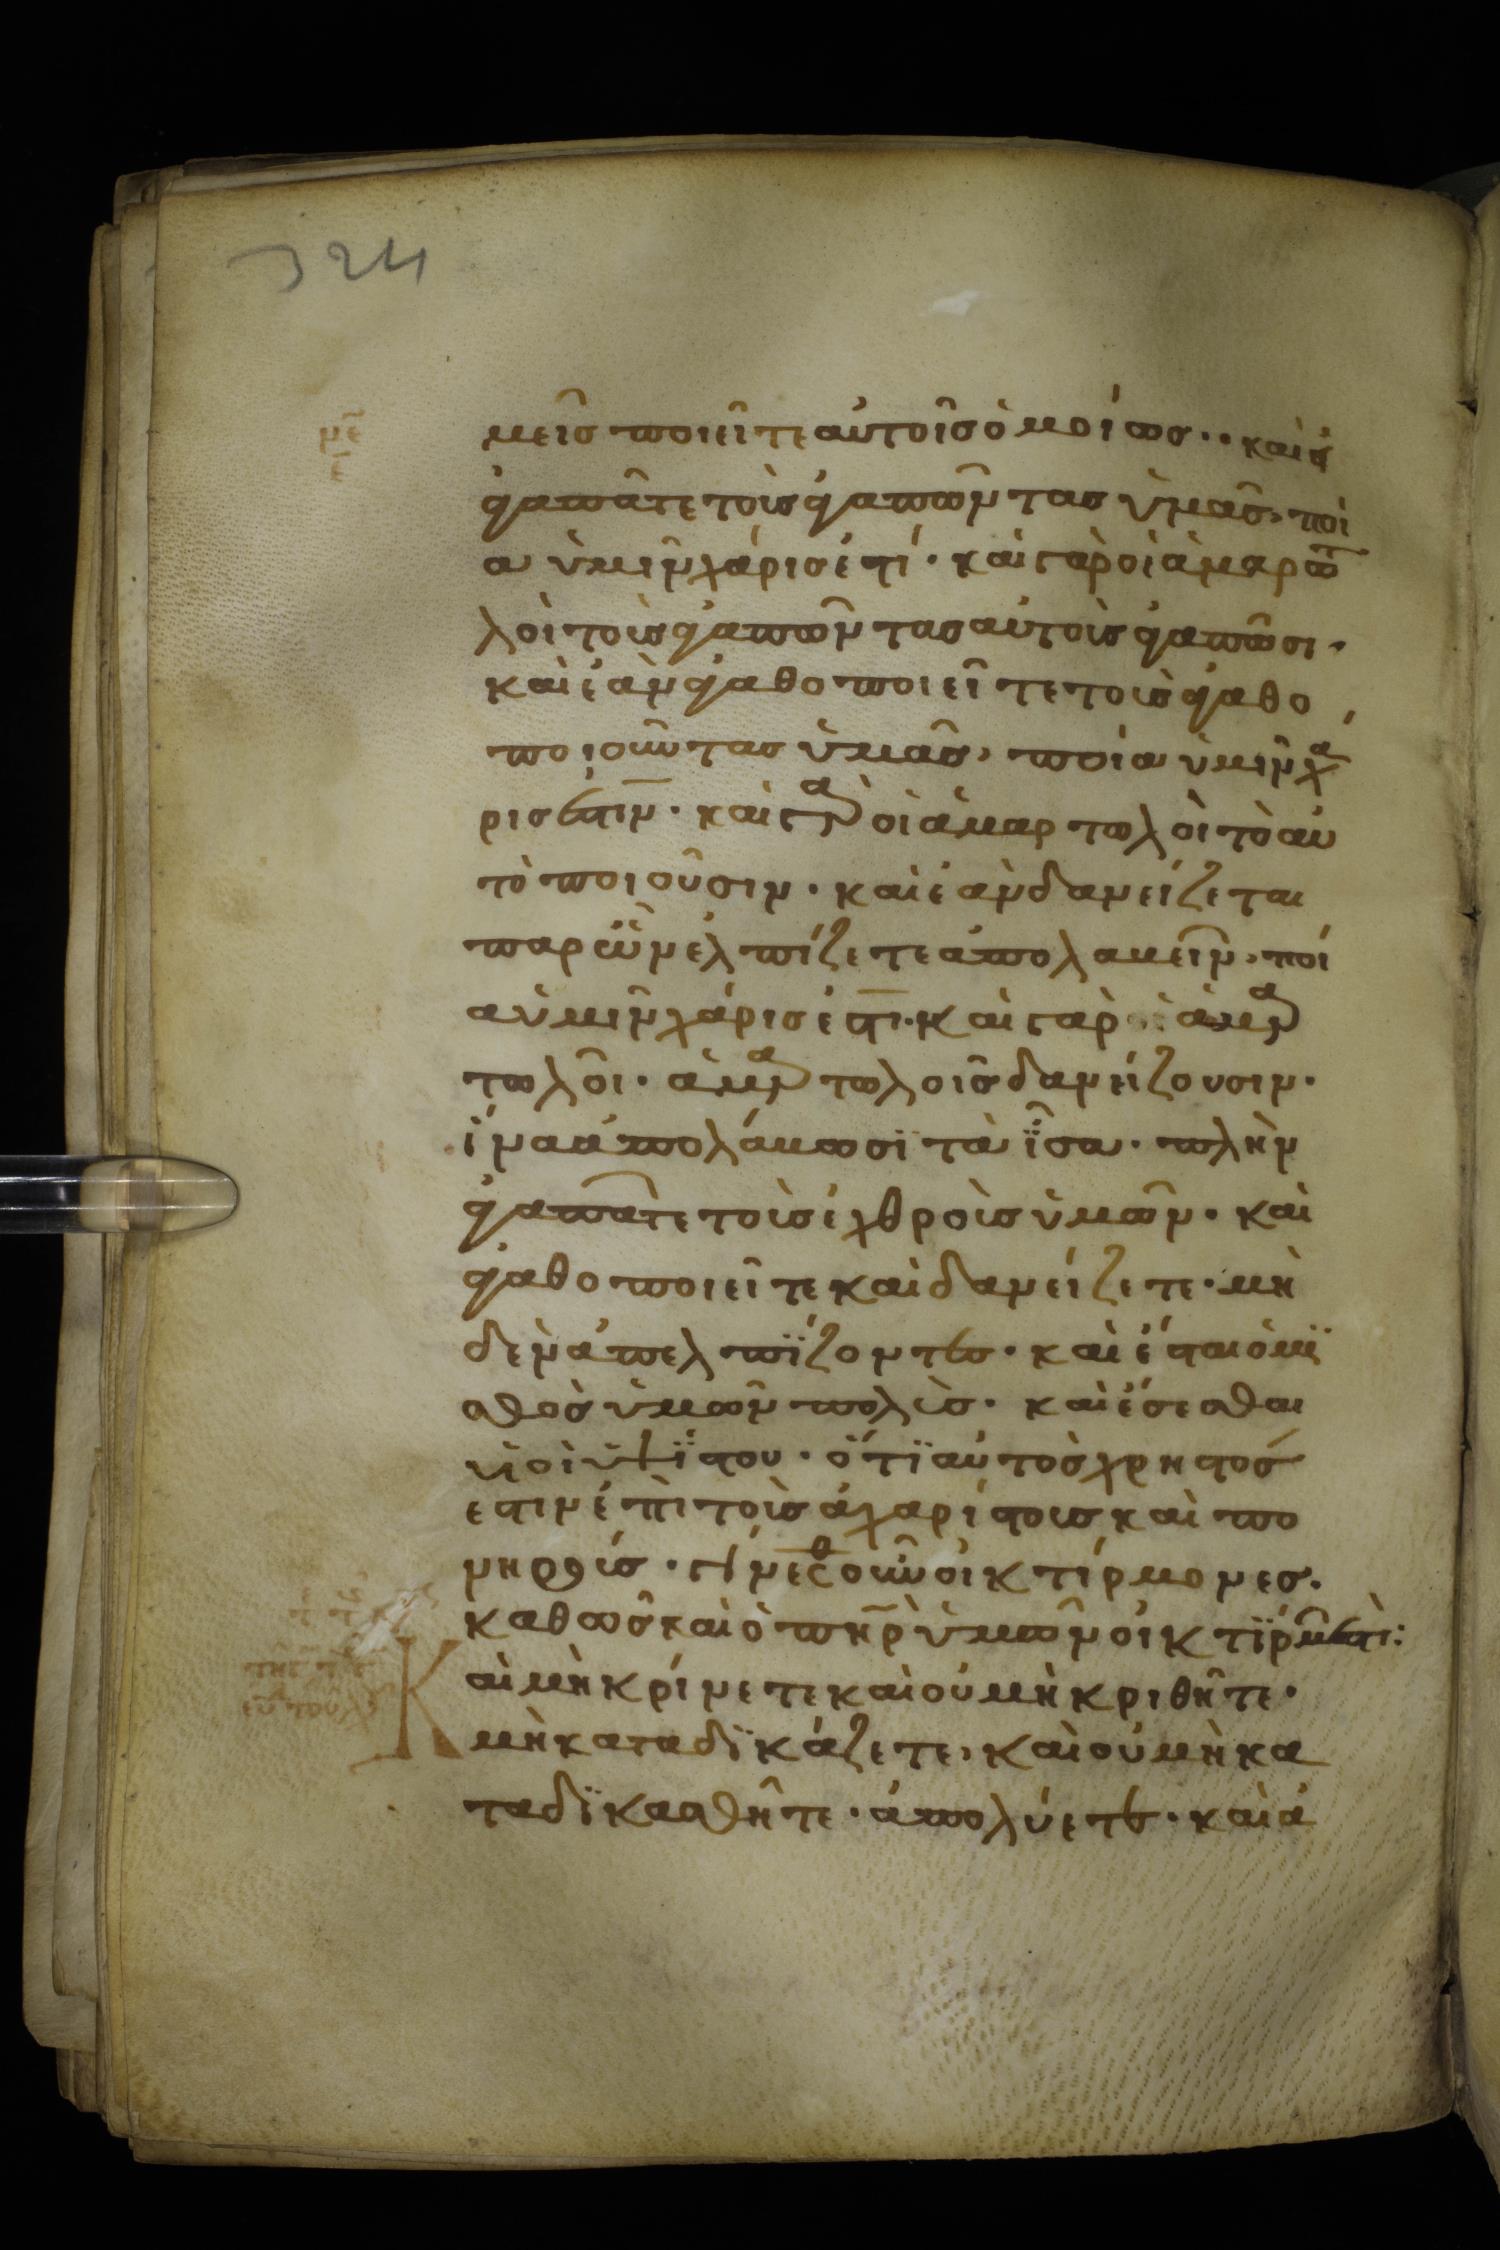 324
μεῖς ποιεῖτε αὐτοῖς ὁμοίως·· καὶ εἰ
ἀγαπᾶτε τοὺς ἀγαπῶντας ὑμᾶς, ποί
α ὑμῖν χάρις ἐστί· καὶ γὰρ οἱ ἁμαρτω
λοὶ τοὺς ἀγαπῶντας αὐτοὺς ἀγαπῶσι·
καὶ ἐὰν ἀγαθοποιεῖτε τοὺς ἀγαθο
ποιοῦντας ὑμᾶς, ποία ὑμῖν χά
ρις ἐστίν· καὶ γὰρ οἱ ἁμαρτωλοὶ τὸ αὐ
τὸ ποιοῦσιν· καὶ ἐὰν δανείζεται
παρ ὧν ἐλπίζετε ἀπολαβεῖν, ποί
α ὑμῖν χάρις ἐστι· καὶ γὰρ οἱ ἁμαρ
τωλοῖ· ἁμαρτωλοῖς δανείζουσιν·
ἵνα ἀπολάβωσϊ τὰ ἴσα· πλὴν
ἀγαπᾶτε τοὺς ἐχθροὺς ὑμῶν· καὶ
ἀγαθοποιεῖτε καὶ δανείζετε· μη
δὲν ἀπελπίζοντες· καὶ ἔσται ὁ μϊ
σθὸς ὑμῶν πολὺς· καὶ ἔσεσθαι
υἱοὶ ὑψίστου· ὅτϊ αὐτὸς χρηστός
εστιν ἐπὶ τοὺς ἀχαρίστους καὶ πο
νηρούς· γίνεσθε οὖν οἰκτίρμονες·
καθὼς καὶ ὁ πη̅ρ ὑμῶν οἰκτίρμων ἐστὶ:
Καὶ μὴ κρίνετε καὶ οὐ μὴ κριθῆτε·
μὴ καταδϊκάζετε, καὶ οὐ μὴ κα
ταδϊκασθῆτε· ἀπολύετε· καὶ ἀ